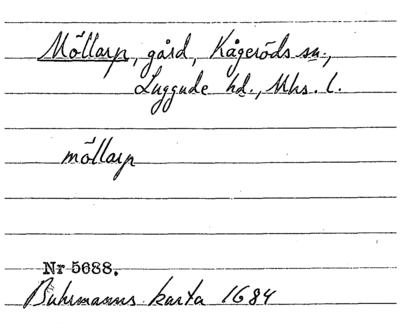 Möllarp, gård, Kågeröds sn.,
Luggude hd., Mhs. l.
möllarp
Nr 5688.
Buhrmanns karta 1684